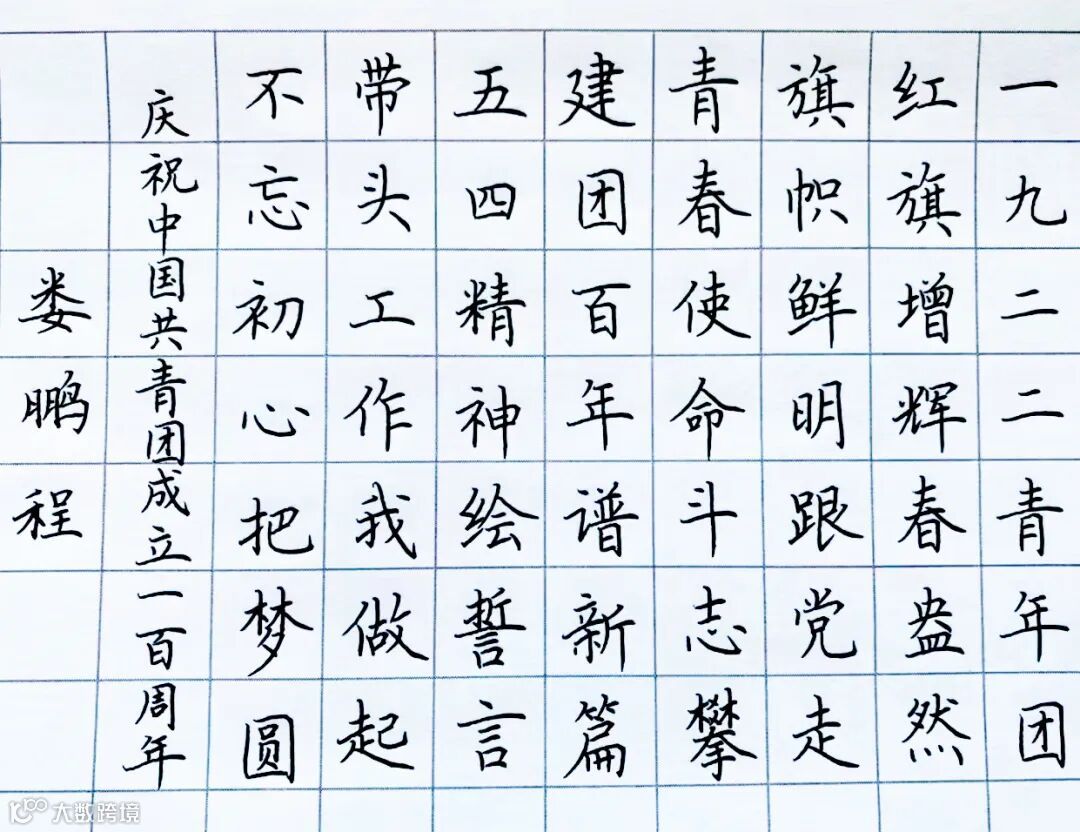 一九二二青年团
红旗增辉春盎然
旗帜鲜明跟党走
青春使命斗志攀
建团百年谱新篇
五四精神绘誓言
带头工作我做起
不忘初心把梦圆
庆祝中国共青团成立一百周年
娄鹏程
大数跨境